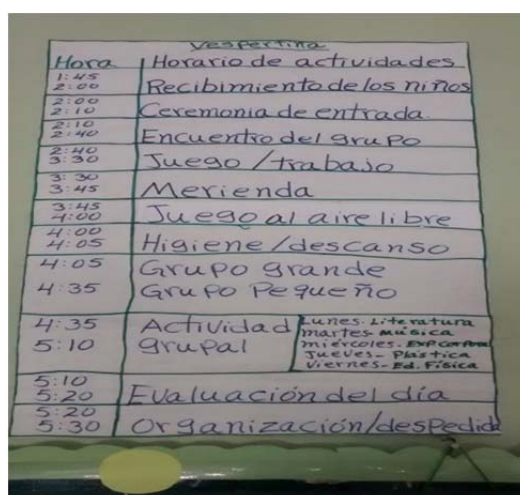 Vespertina
Hora Horario de actividades
1:45
2:00 Recibimiento de los niños
2:00
2:10 Ceremonia de entrada.
2:10
2:40 Encuentro del grupo
2:40
3:30 Juego / trabajo
3:30
3:45 Merienda
3:45
4:00 Juego al aire libre
4:00
4:05 Higiene/descanso
4:05 Grupo grande
4:35 Grupo Pequeño
4:35 Actividad
5:10 grupal
Lunes. Literatura
martes. música
miércoles. Exp corporal
Jueves- Plástica
Viernes- Ed. Física
5:10
5:20 Evaluación del día
5:20
5:30 Organización/despedida